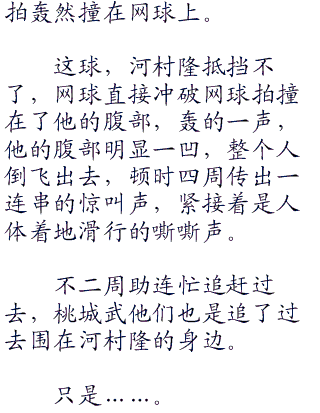 拍轰然撞在网球上。
这球，河村隆抵挡不
了，网球直接冲破网球拍撞
在了他的腹部，轰的一声，
他的腹部明显一凹，整个人
倒飞出去，顿时四周传出一
连串的惊叫声，紧接着是人
体着地滑行的嘶嘶声。
不二周助连忙追赶过
去，桃城武他们也是追了过
去围在河村隆的身边。
只是……。